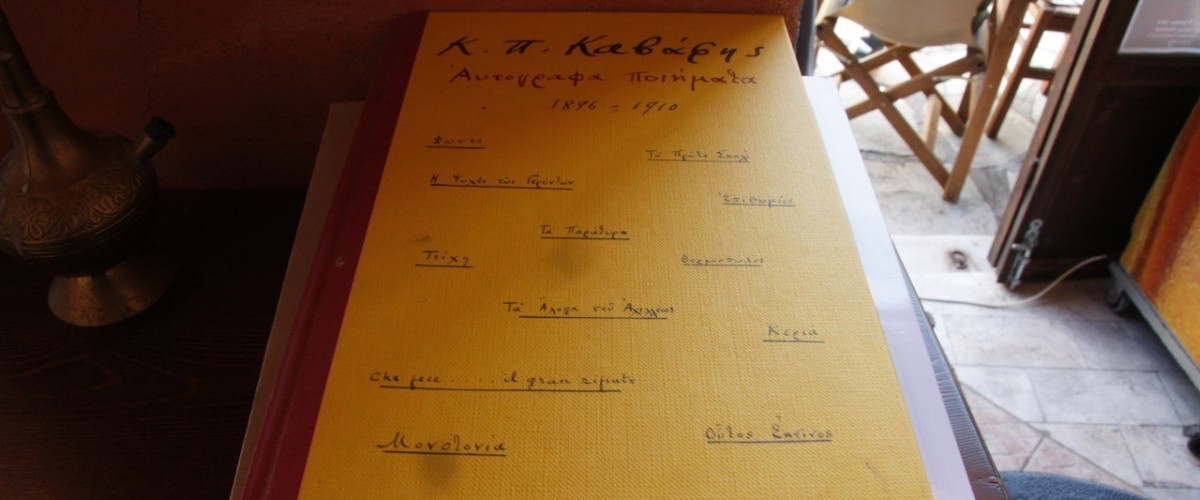 Κ. Π. Καβάφης
Αυτογραφα Ποιήματα
1896 = 1910
Φωνές
Το Πρώτο Σκαλί
Η Ψυχές των Γερόντων
Επιθυμίες
Τα Παράθυρα
Τείχη
Θερμοπυλες
Τα Άλογα του Αχιλλέως
Κεριά
Che fece .... il gran rifiuto
Μονοτονία
Οὗτος Ἐκεῖνος